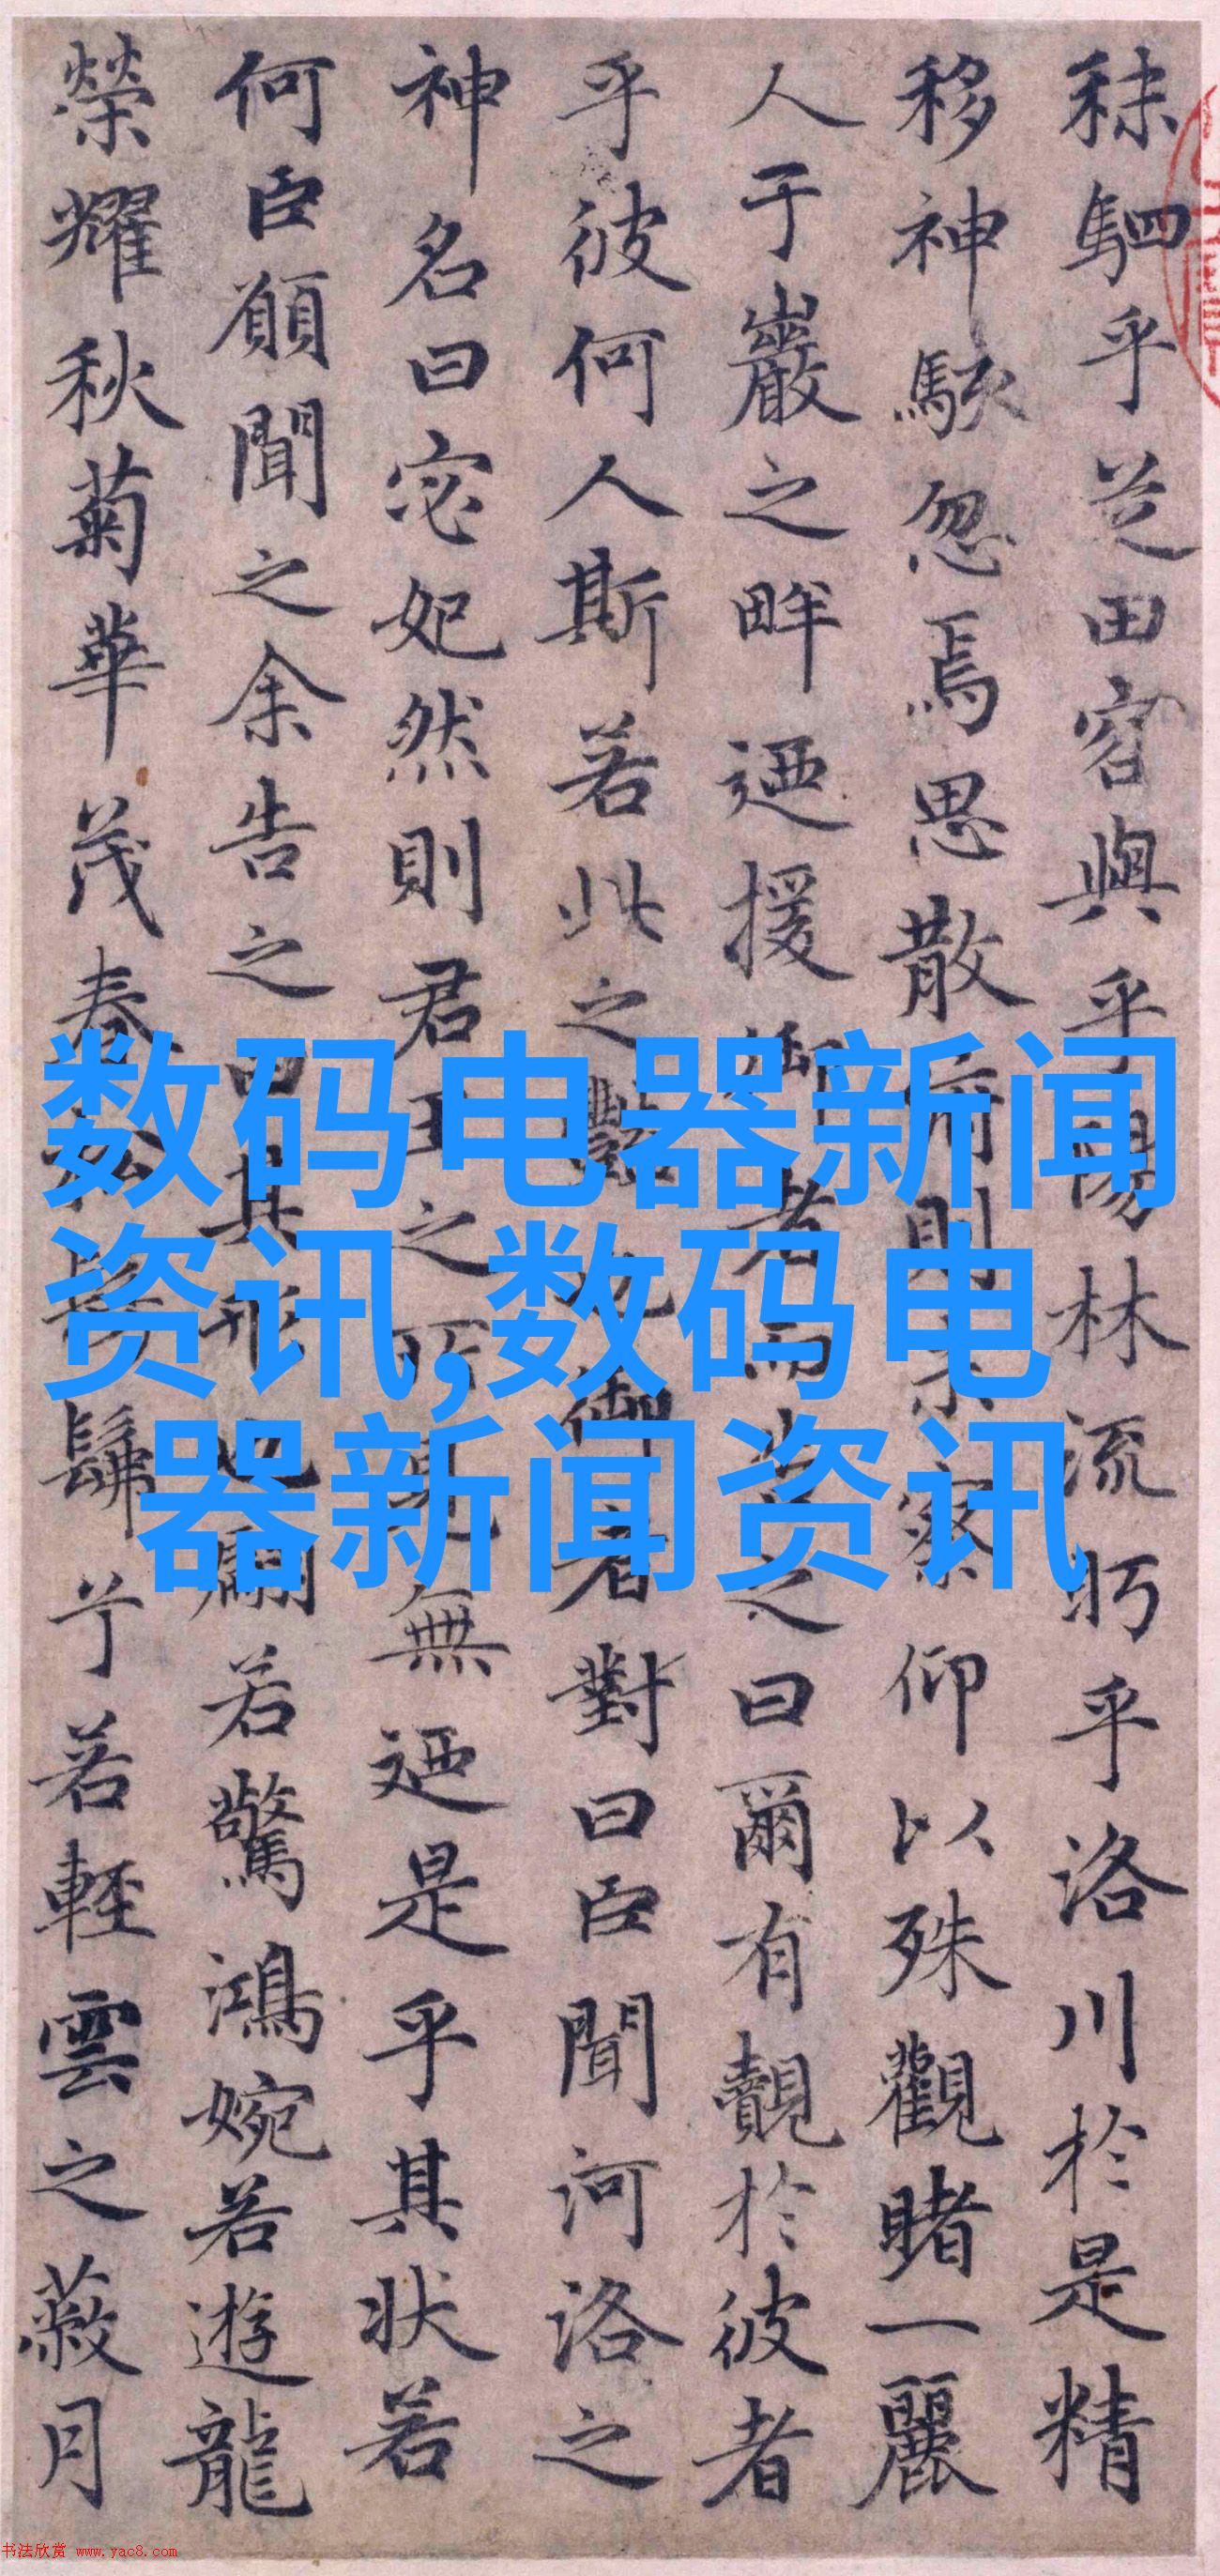 秣駟乎芝田容與乎陽林流眄乎洛川於是精
移神駭忽焉思散俯則未察仰以殊觀睹一麗
人于巖之畔迺援御者而告之曰爾有覿於彼者
乎彼何人斯若此之豔也御者對曰臣聞河洛之
神名曰宓妃然則君王之所見無迺是乎其狀若
何臣願聞之余告之曰其形也翩若驚鴻婉若遊龍
榮耀秋菊華茂春松髣髴兮若輕雲之蔽月
数码电器新闻
资讯,数码电
器新闻资讯
书法欣赏 www.yac8.com